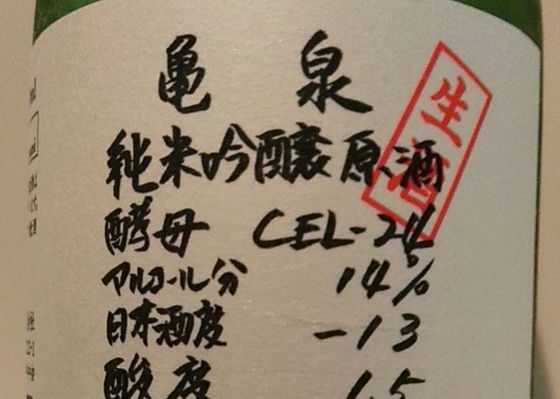 亀泉
純米吟醸原酒
生酒
酵母 CEL-24
アルコール分 14%
日本酒度 -13
酸度